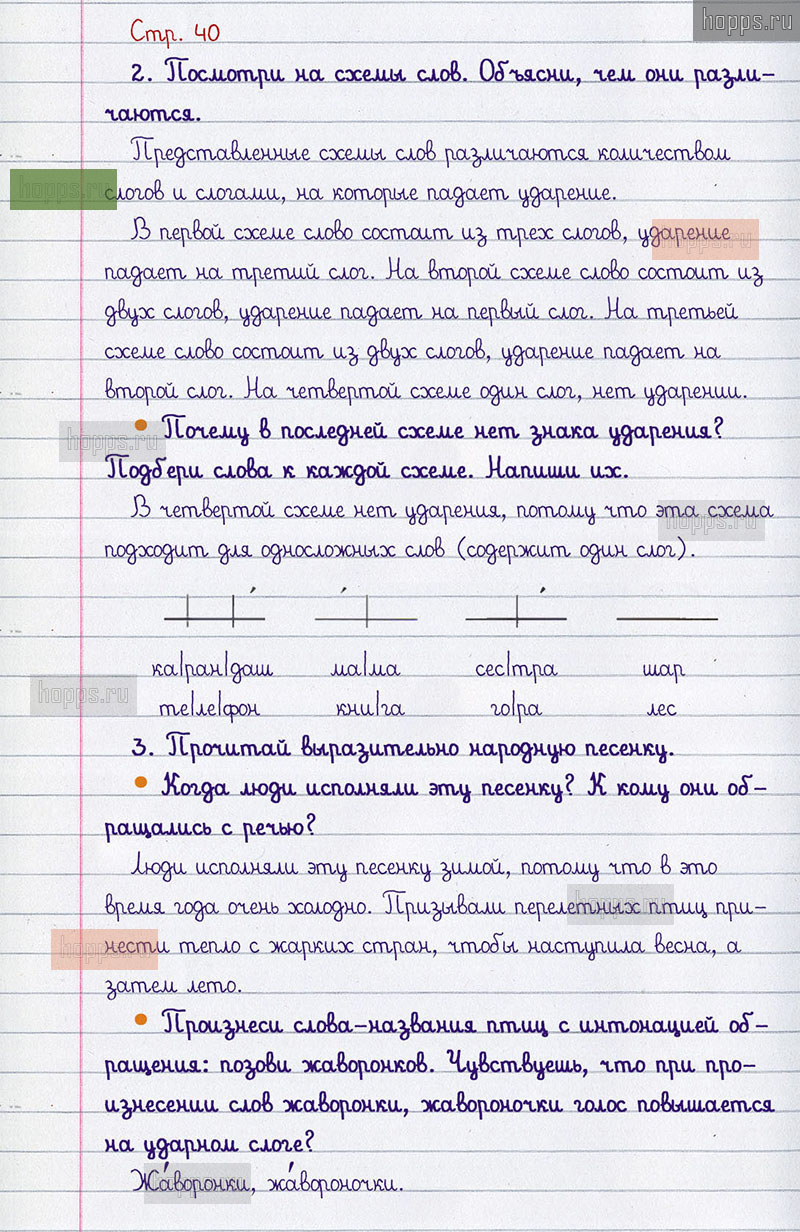 hopps.ru
Стр. 40
2. Посмотри на схемы слов. Объясни, чем они разли-
чаются.
Представленные схемы слов различаются количеством
слогов и слогами, на которые падает ударение.
В первой схеме слово состоит из трех слогов, ударение
падает на третий слог. На второй схеме слово состоит из
двух слогов, ударение падает на первый слог. На третьей
схеме слово состоит из двух слогов, ударение падает на
второй слог. На четвертой схеме один слог, нет ударении.
• Почему в последней схеме нет знака ударения?
Подбери слова к каждой схеме. Напиши их.
В четвертой схеме нет ударения, потому что эта схема
подходит для односложных слов (содержит один слог).
ка|ран|даш ма|ма сес|тра шар
те|ле|фон кни|га го|ра лес
3. Прочитай выразительно народную песенку.
• Когда люди исполняли эту песенку? К кому они об-
ращались с речью?
Люди исполняли эту песенку зимой, потому что в это
время года очень холодно. Призывали перелетных птиц при-
нести тепло с жарких стран, чтобы наступила весна, а
затем лето.
• Произнеси слова-названия птиц с интонацией об-
ращения: позови жаворонков. Чувствуешь, что при про-
изнесении слов жаворонки, жавороночки голос повышается
на ударном слоге?
Жа́воронки, жа́вороночки.